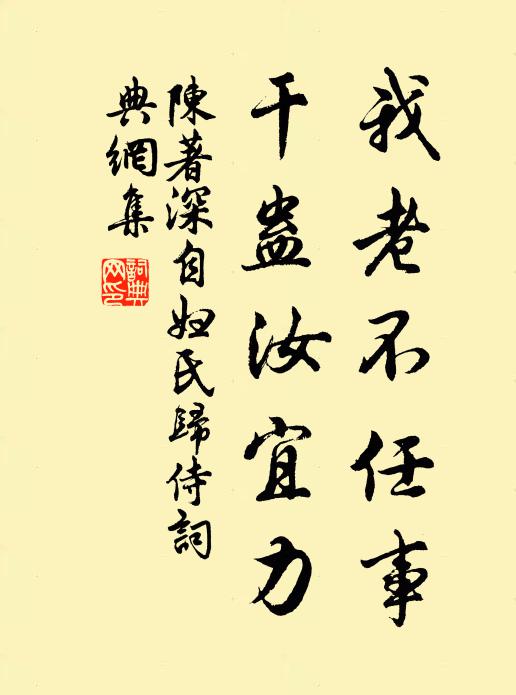 我老不任事
干蠱汝宜力
陳著深自妲氏歸侍詞
典網集
詞典
网印